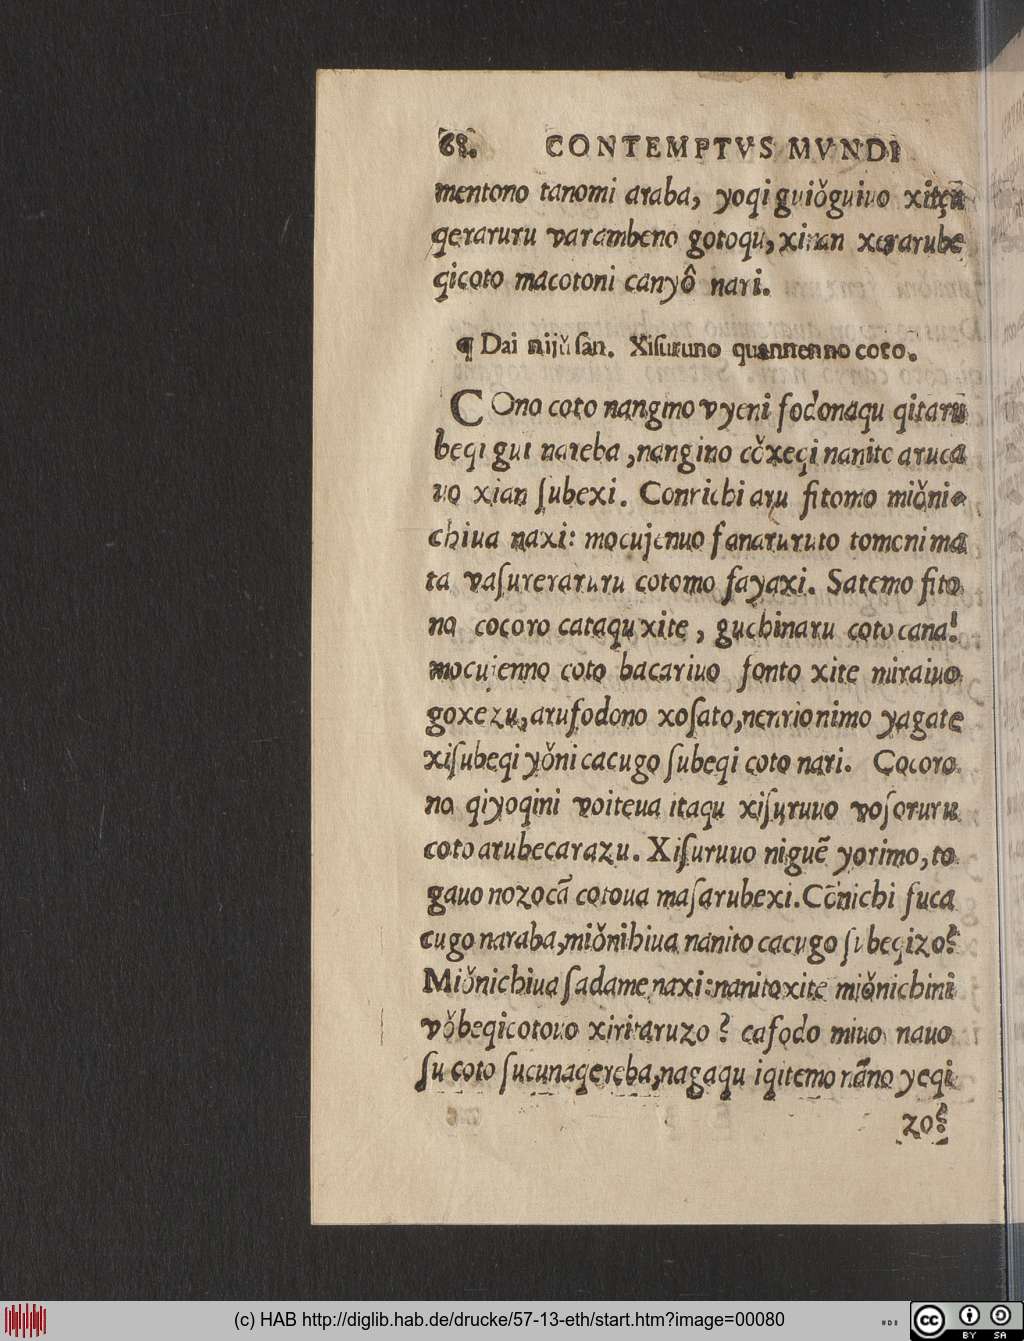 68. CONTEMPTVS MVNDI
mentono tanomi araba, yoqi guiǒguiuo xitçu
qeraruru varambeno gotoqu, xinan xerarube
qicoto macotoni canyô nari.
¶ Dai nijŭ ſan. Xiſuruno quannenno coto.
COno coto nangino vyeni fodonaqu qitaru
beqi gui nareba, nangino cǒxeqi nanito aruca
uo xian ſubexi. Connichi aru fitomo miǒni‐
chiua naxi: mocujenuo fanaruruto tomeni ma
ta vaſureraruru cotomo fayaxi. Satemo fito
no cocoro cataqu xite, guchinaru coto cana!
mocujenno coto bacariuo fonto xite miraiuo
goxezu, arufodono xoſato, nenrionimo yagate
xiſubeqi yǒni cacugo ſubeqi coto nari. Cocoro
no qiyoqini voiteua itaqu xiſuruuo voſoruru
coto arubecarazu. Xiſuruuo niguẽ yorimo, to
gauo nozocã cotoua maſarubexi. Cõnichi fuca
cugo naraba, miǒnichiua nanito cacugo ſubeqizo?
Miǒnichiua ſadame naxi: nanitoxite miǒnichini
vǒbeqicotouo xiritaruzo? cafodo miuo nauo
ſu coto ſucunaqereba, nagaqu iqitemo nãno yeqi
zo?
(c) HAB http://diglib.hab.de/drucke/57-13-eth/start.htm?image=00080
cc
BY SA